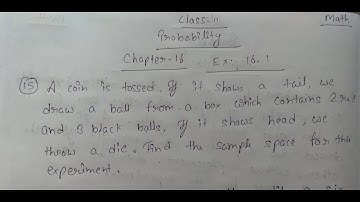 Class-11
Math
Probability
Chapter-16 Ex:- 16.1
(15) A coin is tossed. If it shows a tail, we
draw a ball from a box which contains 2 red
and 3 black balls. If it shows head, we
throw a die. Find the sample space for this
experiment.